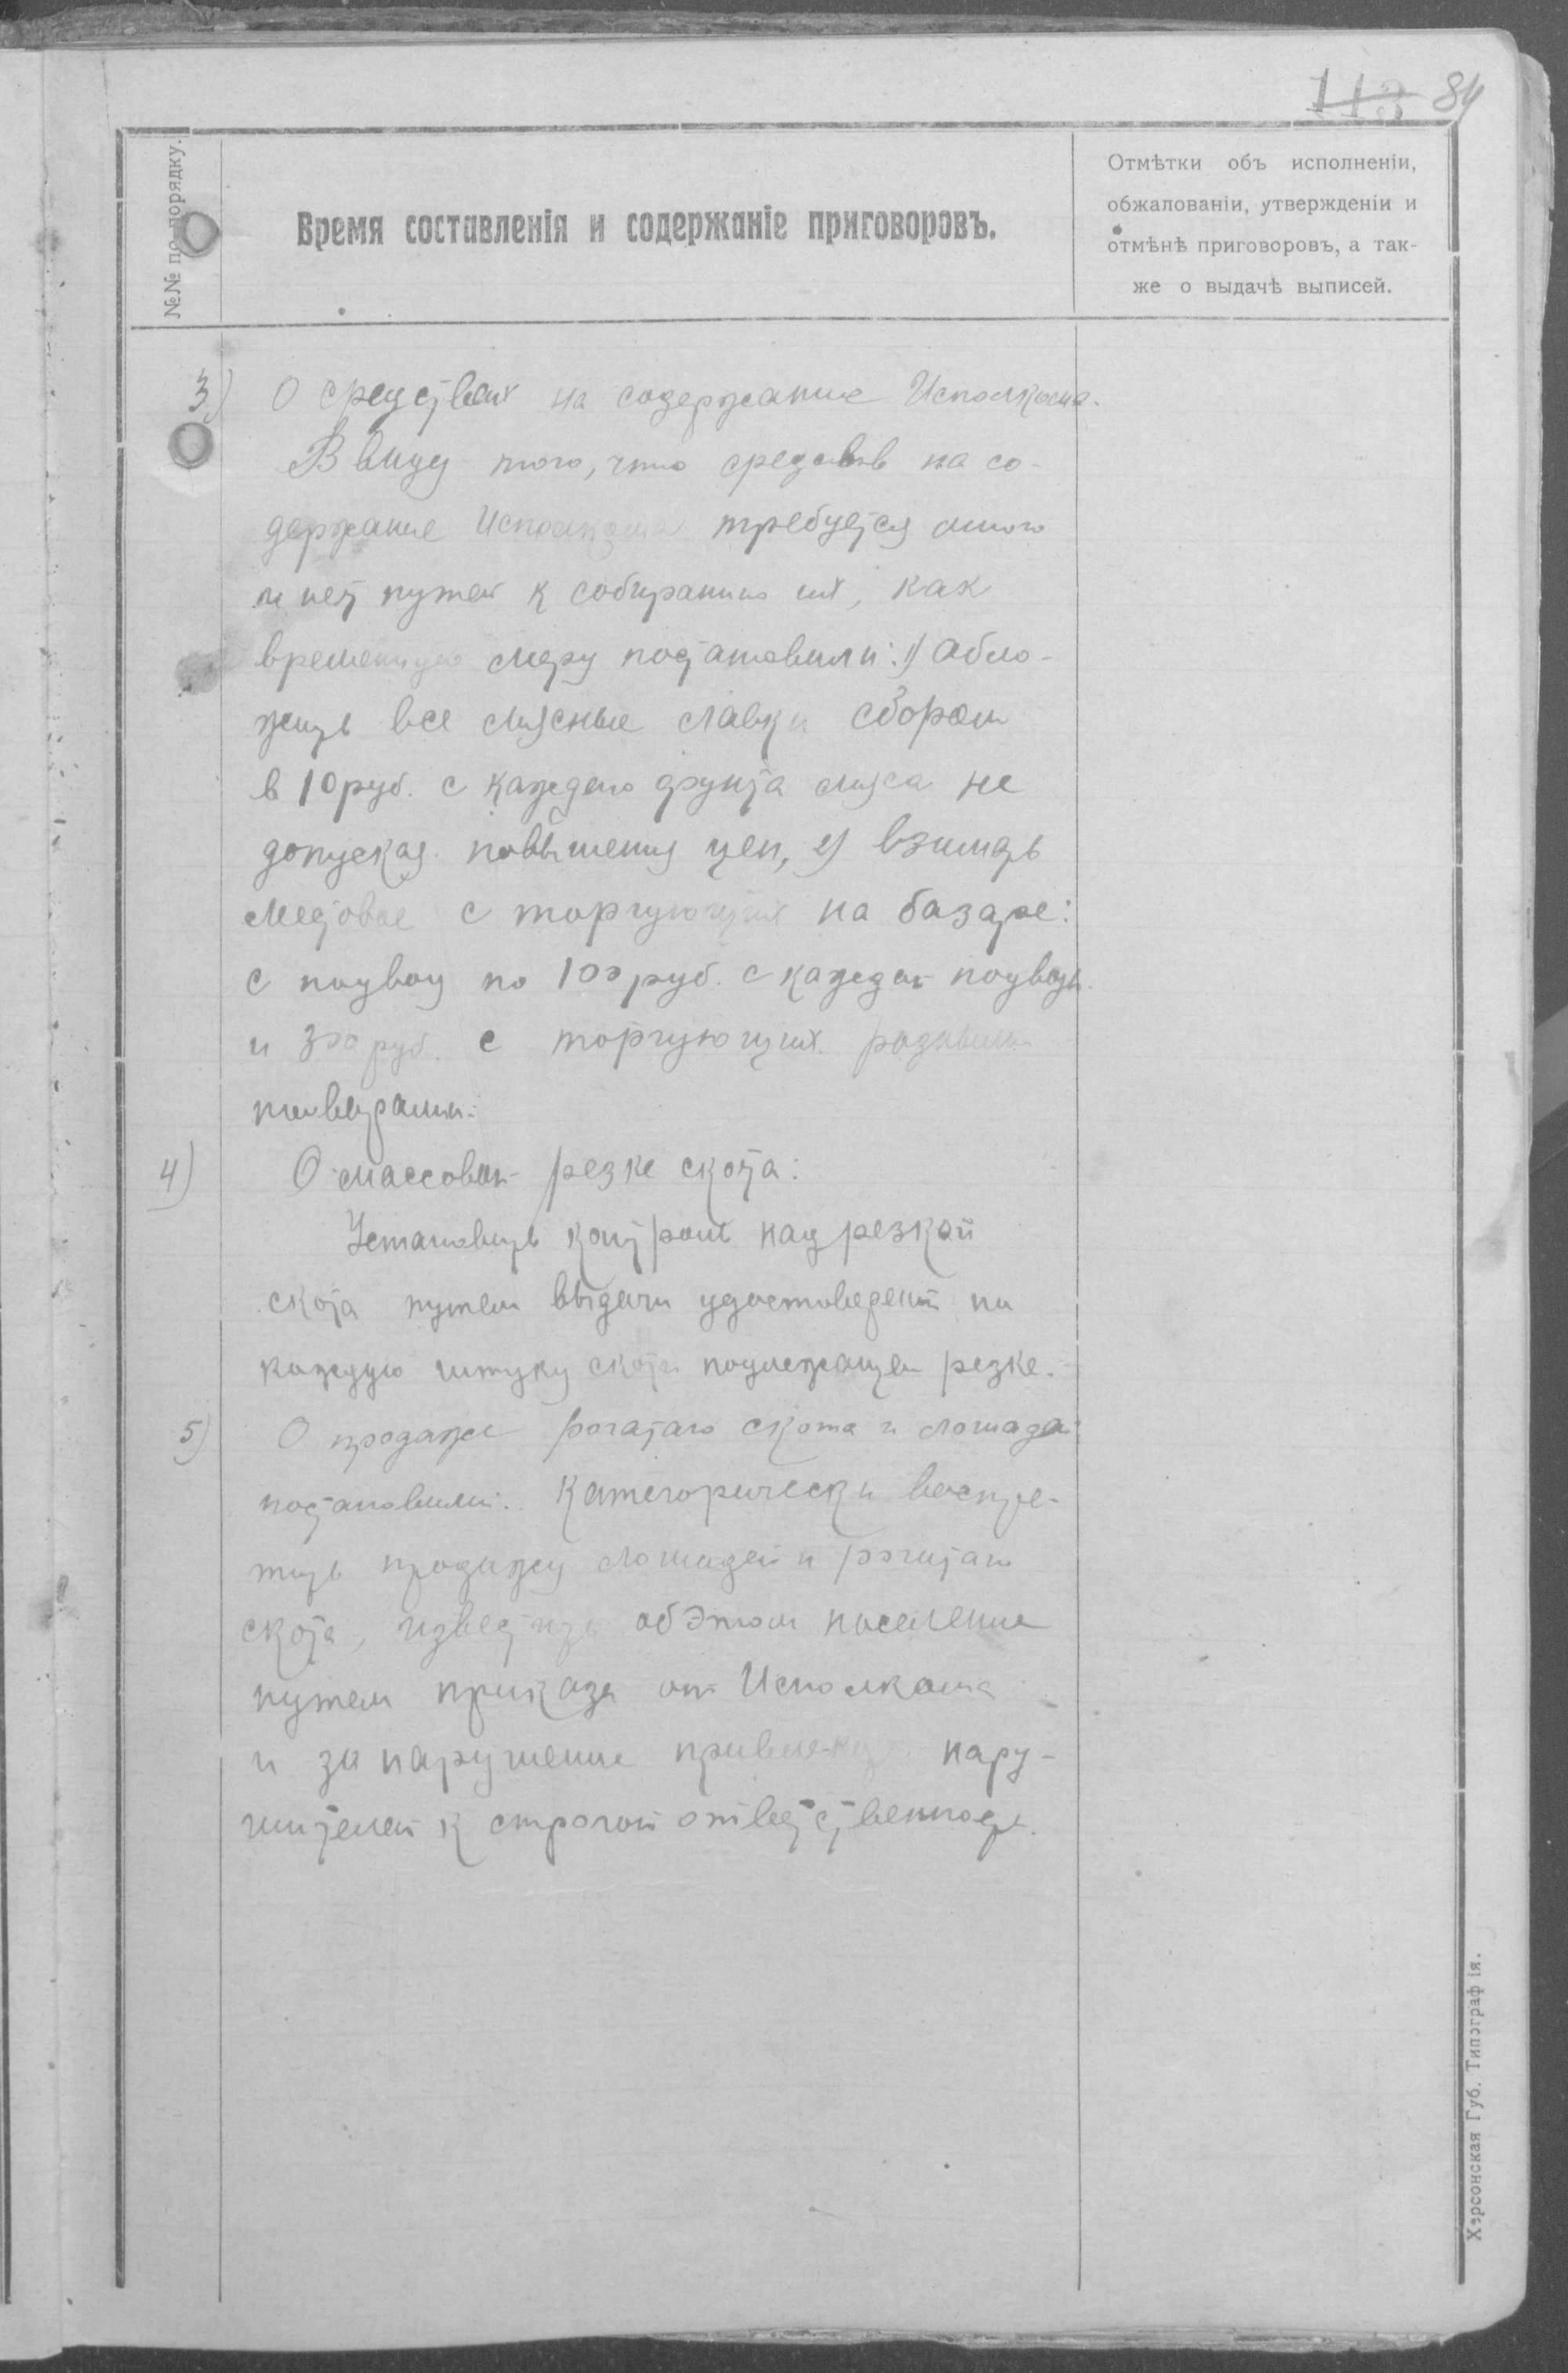 113 84
№№ по порядку.
Время составленія и содержаніе приговоровъ.
Отмѣтки объ исполненіи,
обжалованіи, утвержденіи и
отмѣнѣ приговоровъ, а так-
же о выдачѣ выписей.
3) О средствах на содержание Исполкома.
В виду того, что средств на со-
держание Исполкома требуется много
и нет путей к собиранию их, как
временную меру постановили: 1) Обло-
жить все мясные лавки сбором
в 10 руб. с каждого фунта мяса не
допуская повышения цен, 2) взимать
местовое с торгующих на базаре:
с подвод по 100 руб. с каждой подводы
и 300 руб. с торгующих разными
товарами.
4) О массовой резке скота:
Установить контроль над резкой
скота путем выдачи удостоверений на
каждую штуку скота подлежащей резке.
5) О продаже рогатаго скота и лошадей
постановили: Категорически воспре-
тить продажу лошадей и рогатаго
скота, известить об этом население
путем приказа от Исполкома
и за нарушение привлекать нару-
шителей к строгой ответственности.
Херсонская Губ. Типографія.